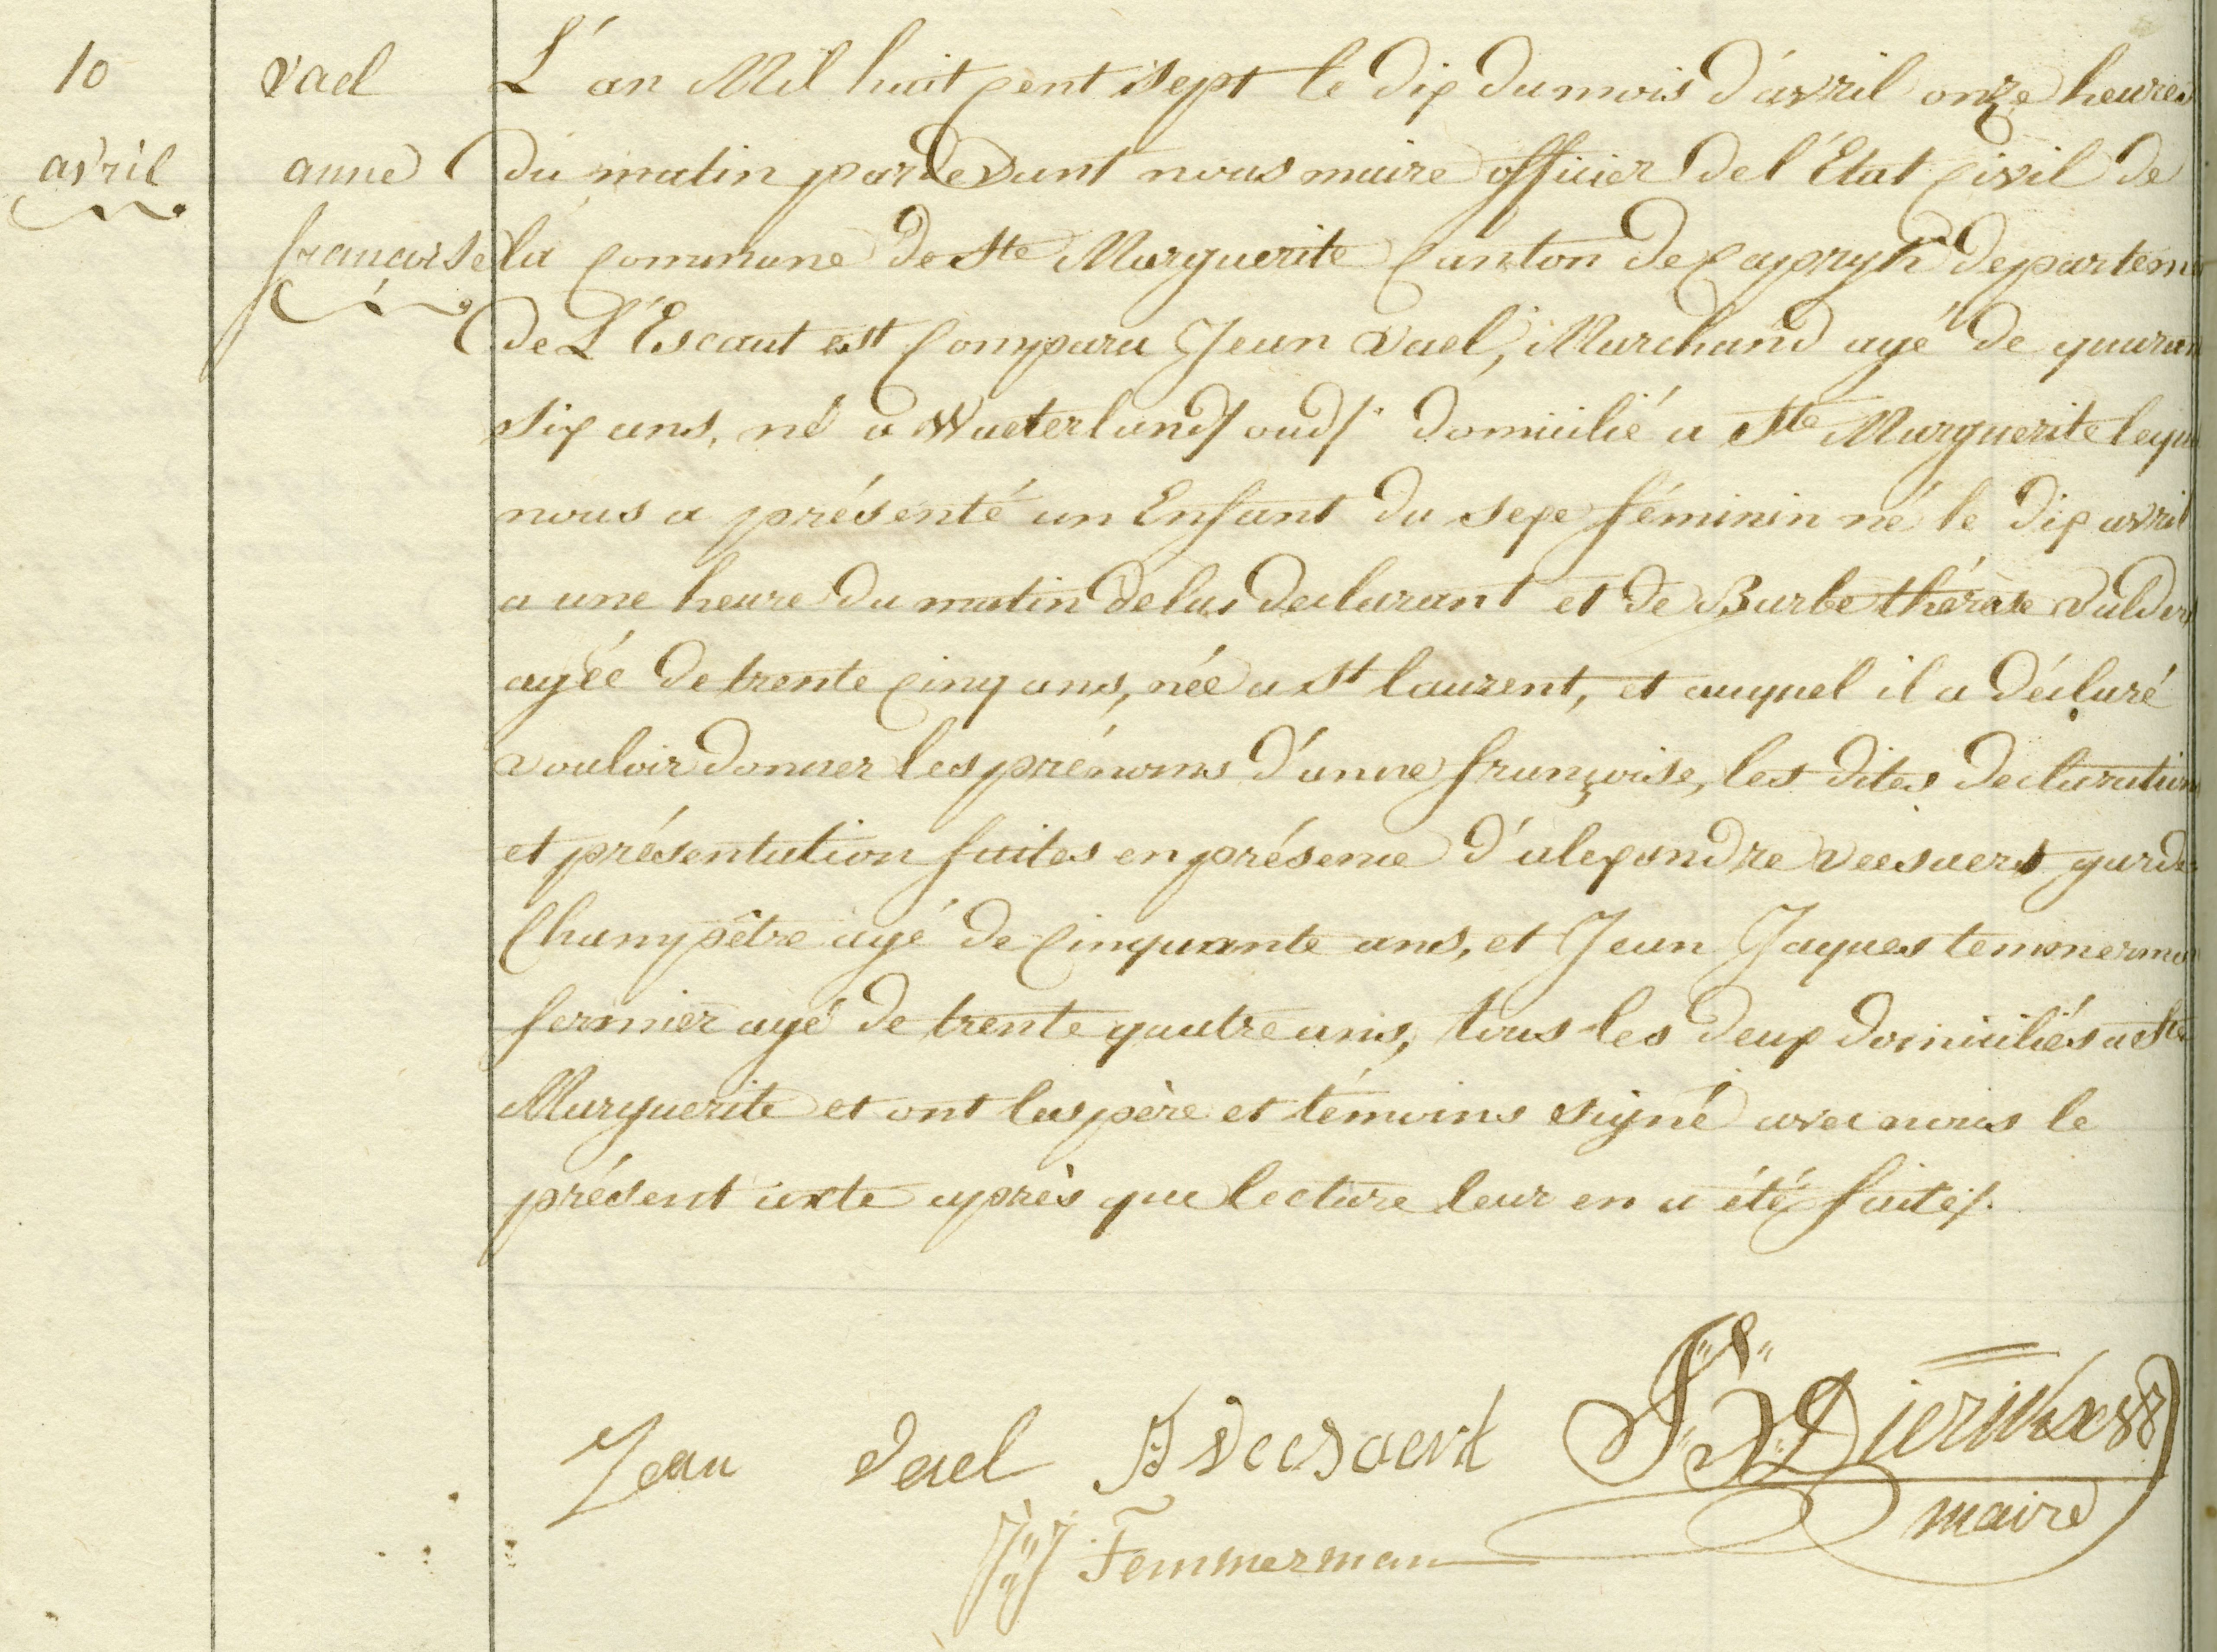 10
avril
vael
anne
francoise
L'an Mil huit cent sept le dix du mois d'avril onze heures
du matin pardevant nous maire officier de l'Etat civil de
la commune de Ste Marguerite canton de Capryk departem
de L'Escaut est comparu Jean vael, Marchand agé de quaran
six ans, né a Waeterland/oud/ domicilié a Ste Marguerite lequ
nous a présenté un Enfant du sexe féminin né le dix avril
a une heure du matin de lui declarant et de Barbe thérese
agée de trente cinq ans, née a St laurent, et auquel il a déclaré
vouloir donner les prénoms d'anne françoise, les dites declaration
et présentation faites en présence d'alexandre veesaert garde
Champêtre agé de Cinquante ans, et Jean Jaques temmerman
fermier agé de trente quatre ans, tous les deux domiciliés a Ste
Marguerite et ont les père et témoins signé avec nous le
présent acte après que lecture leur en a été faite/.
Jean vael
veesaert
Dierickx
maire
JJ Temmerman